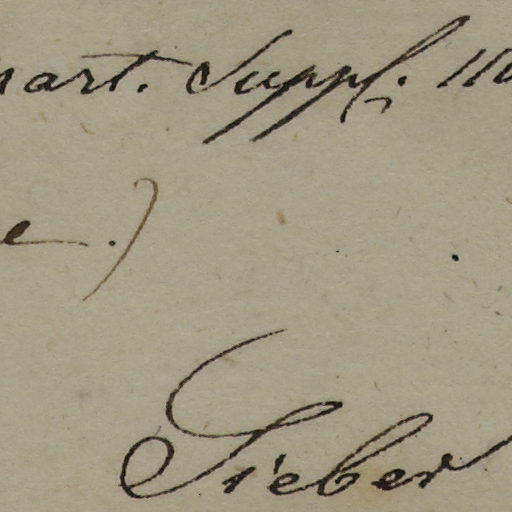 mart. Suppl. no
e.)
Sieber